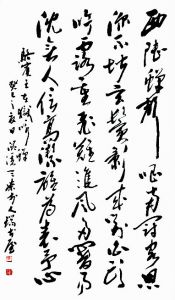 西陸蟬聲唱南冠客思
深不堪玄鬢影來對白頭
吟露重飛難進風多響易
沈無人信高潔誰為表予心
駱賓王在獄咏蟬